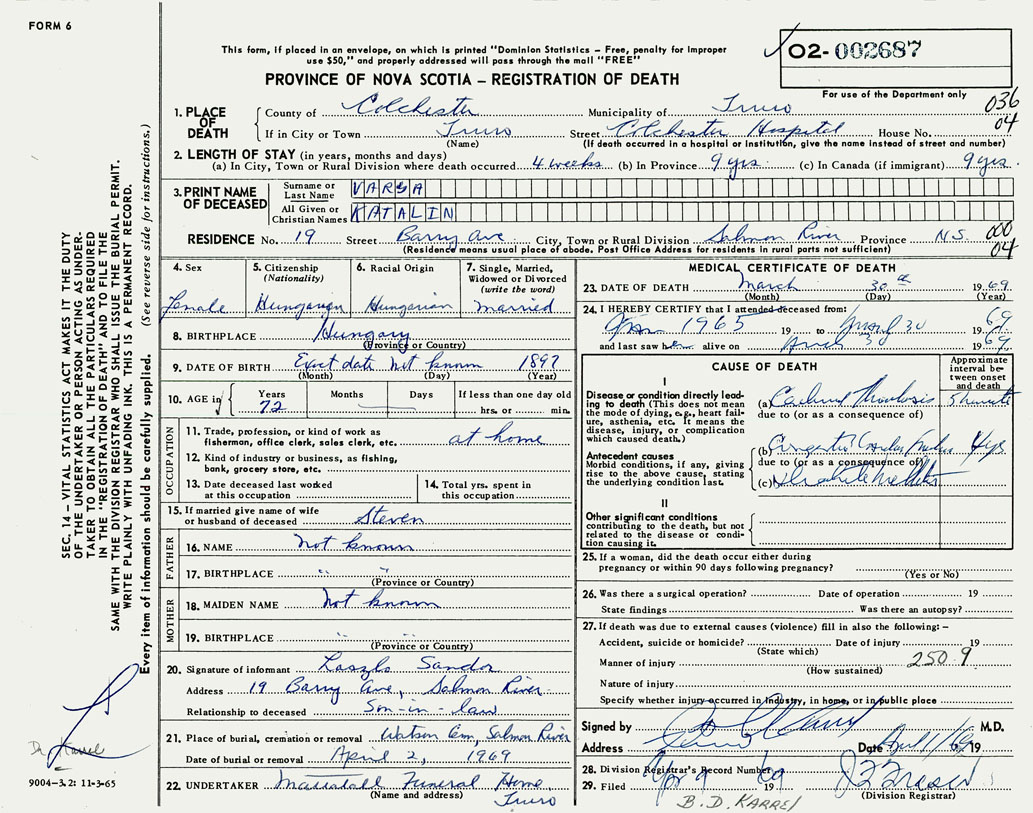 FORM 6
This form, if placed in an envelope, on which is printed "Dominion Statistics – Free, penalty for improper
use $50," and properly addressed will pass through the mail "FREE"
PROVINCE OF NOVA SCOTIA – REGISTRATION OF DEATH
02-002687
For use of the Department only
036
04
1. PLACE OF DEATH
County of Colchester Municipality of Truro
If in City or Town Truro Street Colchester Hospital House No.
(Name) (If death occurred in a hospital or Institution, give the name instead of street and number)
2. LENGTH OF STAY (in years, months and days)
(a) In City, Town or Rural Division where death occurred 4 weeks (b) In Province 9 yrs. (c) In Canada (if immigrant) 9 yrs.
3. PRINT NAME OF DECEASED
Surname or Last Name VARGA
All Given or Christian Names KATALIN
RESIDENCE No. 19 Street Barry Ave City, Town or Rural Division Salmon River Province N.S.
(Residence means usual place of abode. Post Office Address for residents in rural parts not sufficient)
000
04
4. Sex
Female
5. Citizenship (Nationality)
Hungarian
6. Racial Origin
Hungarian
7. Single, Married, Widowed or Divorced (write the word)
married
8. BIRTHPLACE Hungary
(Province or Country)
9. DATE OF BIRTH Exact date not known 1897
(Month) (Day) (Year)
10. AGE in
Years 72
Months
Days
If less than one day old
hrs. or min.
OCCUPATION
11. Trade, profession, or kind of work as fisherman, office clerk, sales clerk, etc. at home
12. Kind of industry or business, as fishing, bank, grocery store, etc.
13. Date deceased last worked at this occupation
14. Total yrs. spent in this occupation
15. If married give name of wife or husband of deceased Steven
FATHER
16. NAME not known
17. BIRTHPLACE " "
(Province or Country)
MOTHER
18. MAIDEN NAME not known
19. BIRTHPLACE " "
(Province or Country)
20. Signature of informant Laszlo Sandor
Address 19 Barry Ave, Salmon River
Relationship to deceased Son-in-law
21. Place of burial, cremation or removal Watson Cem, Salmon River
Date of burial or removal April 2, 1969
22. UNDERTAKER Mattatall Funeral Home,
(Name and address) Truro
MEDICAL CERTIFICATE OF DEATH
23. DATE OF DEATH March 30th 1969
(Month) (Day) (Year)
24. I HEREBY CERTIFY that I attended deceased from:
1965 19 to 30 69
and last saw her alive on 30 1969
CAUSE OF DEATH
Approximate interval between onset and death
I
Disease or condition directly leading to death (This does not mean the mode of dying, e.g., heart failure, asthenia, etc. It means the disease, injury, or complication which caused death.)
(a) Thrombosis 5 minutes
due to (or as a consequence of)
Antecedent causes
Morbid conditions, if any, giving rise to the above cause, stating the underlying condition last.
(b) Congestive Cardiac Failure 4 yrs
due to (or as a consequence of)
(c) Diabetes Mellitus
II
Other significant conditions contributing to the death, but not related to the disease or condition causing it.
25. If a woman, did the death occur either during pregnancy or within 90 days following pregnancy?
(Yes or No)
26. Was there a surgical operation? Date of operation 19
State findings Was there an autopsy?
27. If death was due to external causes (violence) fill in also the following: –
Accident, suicide or homicide? Date of injury 19
(State which)
Manner of injury 250.9
(How sustained)
Nature of injury
Specify whether injury occurred in industry, in home, or in public place
Signed by M.D.
Address Truro Date April 1/69 19
28. Division Registrar's Record Number
29. Filed Apr 9 1969
(Division Registrar)
B.D. KARREL
SEC. 14 – VITAL STATISTICS ACT MAKES IT THE DUTY
OF THE UNDERTAKER OR PERSON ACTING AS UNDER-
TAKER TO OBTAIN ALL THE PARTICULARS REQUIRED
IN THE "REGISTRATION OF DEATH" AND TO FILE THE
SAME WITH THE DIVISION REGISTRAR WHO SHALL ISSUE THE BURIAL PERMIT.
WRITE PLAINLY WITH UNFADING INK. THIS IS A PERMANENT RECORD.
Every item of information should be carefully supplied. (See reverse side for instructions.)
Dr Karrel
9004-3.2: 11-3-65